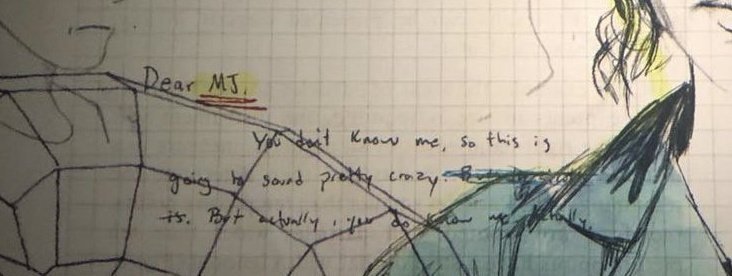 Dear MJ,
You don't know me, so this is
going to sound pretty crazy.
is. But actually, you do know me. Actually,